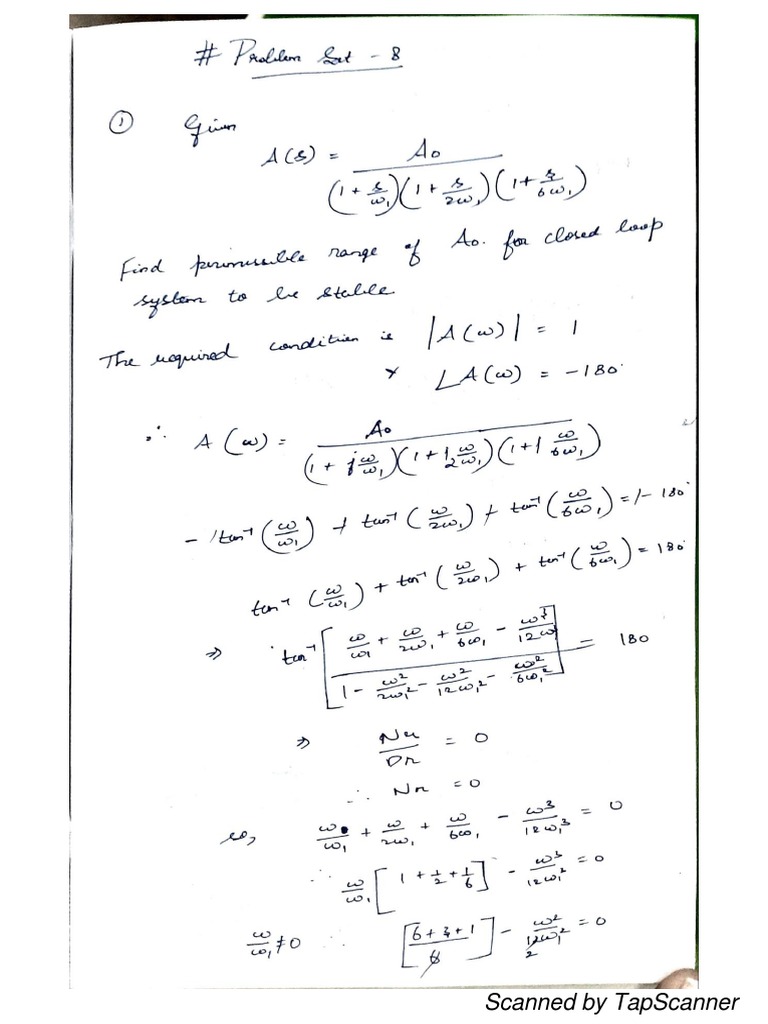 # Problem Set - 8
① Given
A(s) = A₀ / (1 + s/ω₁)(1 + s/2ω₁)(1 + s/6ω₁)
Find permissible range of A₀. for closed loop
system to be stable
The required condition is |A(ω)| = 1
∠A(ω) = -180°
∴ A(ω) = A₀ / (1 + jω/ω₁)(1 + j ω/2ω₁)(1 + j ω/6ω₁)
- tan⁻¹(ω/ω₁) + tan⁻¹(ω/2ω₁) + tan⁻¹(ω/6ω₁) = -180°
tan⁻¹(ω/ω₁) + tan⁻¹(ω/2ω₁) + tan⁻¹(ω/6ω₁) = 180°
⇒ tan⁻¹[(ω/ω₁ + ω/2ω₁ + ω/6ω₁ - ω³/12ω) / (1 - ω²/2ω₁² - ω²/12ω₁² - ω²/6ω₁²)] = 180
⇒ Nr/Dr = 0
∴ Nr = 0
so, ω/ω₁ + ω/2ω₁ + ω/6ω₁ - ω³/12ω₁³ = 0
∴ ω/ω₁ [1 + 1/2 + 1/6] - ω³/12ω₁³ = 0
ω/ω₁ ≠ 0 ∴ [(6+3+1)/6] - ω²/12ω₁² = 0
2
Scanned by TapScanner